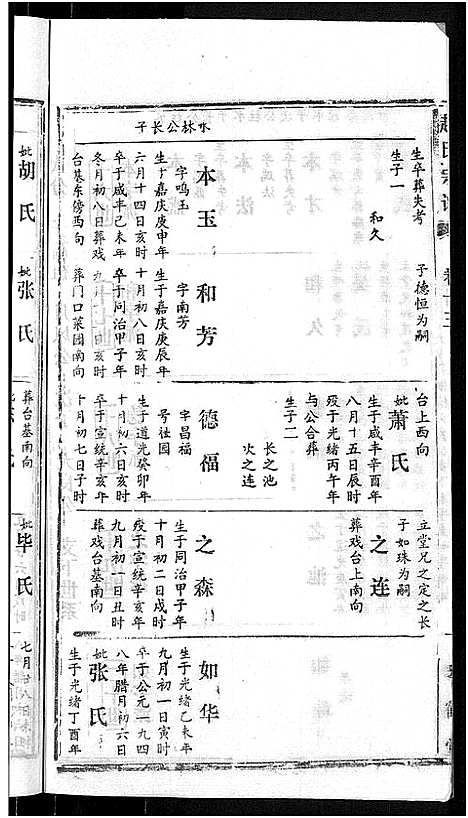 赵氏宗谱
卷十三
生卒葬失考
生子一
和久
子德恒为嗣
水林公长子
本玉
字鸣玉
生于嘉庆庚申年
六月十四日亥时
卒于咸丰己未年
冬月初八日葬戏
台基东傍西向
妣胡氏
和芳
字南芳
生于嘉庆庚辰年
十月初八日亥时
卒于同治甲子年
葬门口菜园南向
妣张氏
台上西向
妣萧氏
生于咸丰辛酉年
八月十五日辰时
殁于光绪丙午年
与公合葬
生子二
长之池
次之连
德福
字昌福
号社园
生于道光癸卯年
十月初六日亥时
卒于宣统辛亥年
十月初七日子时
葬台基南向
立堂兄之定之长
子如珠为嗣
之连
葬戏台上南向
之森
生于同治甲子年
十月初二日戌时
殁于宣统辛亥年
九月初一日丑时
葬戏台基南向
妣毕氏
如华
生于光绪乙未年
九月初一日寅时
卒于公元一九四
八年腊月初六日
妣张氏
生于光绪丁酉年